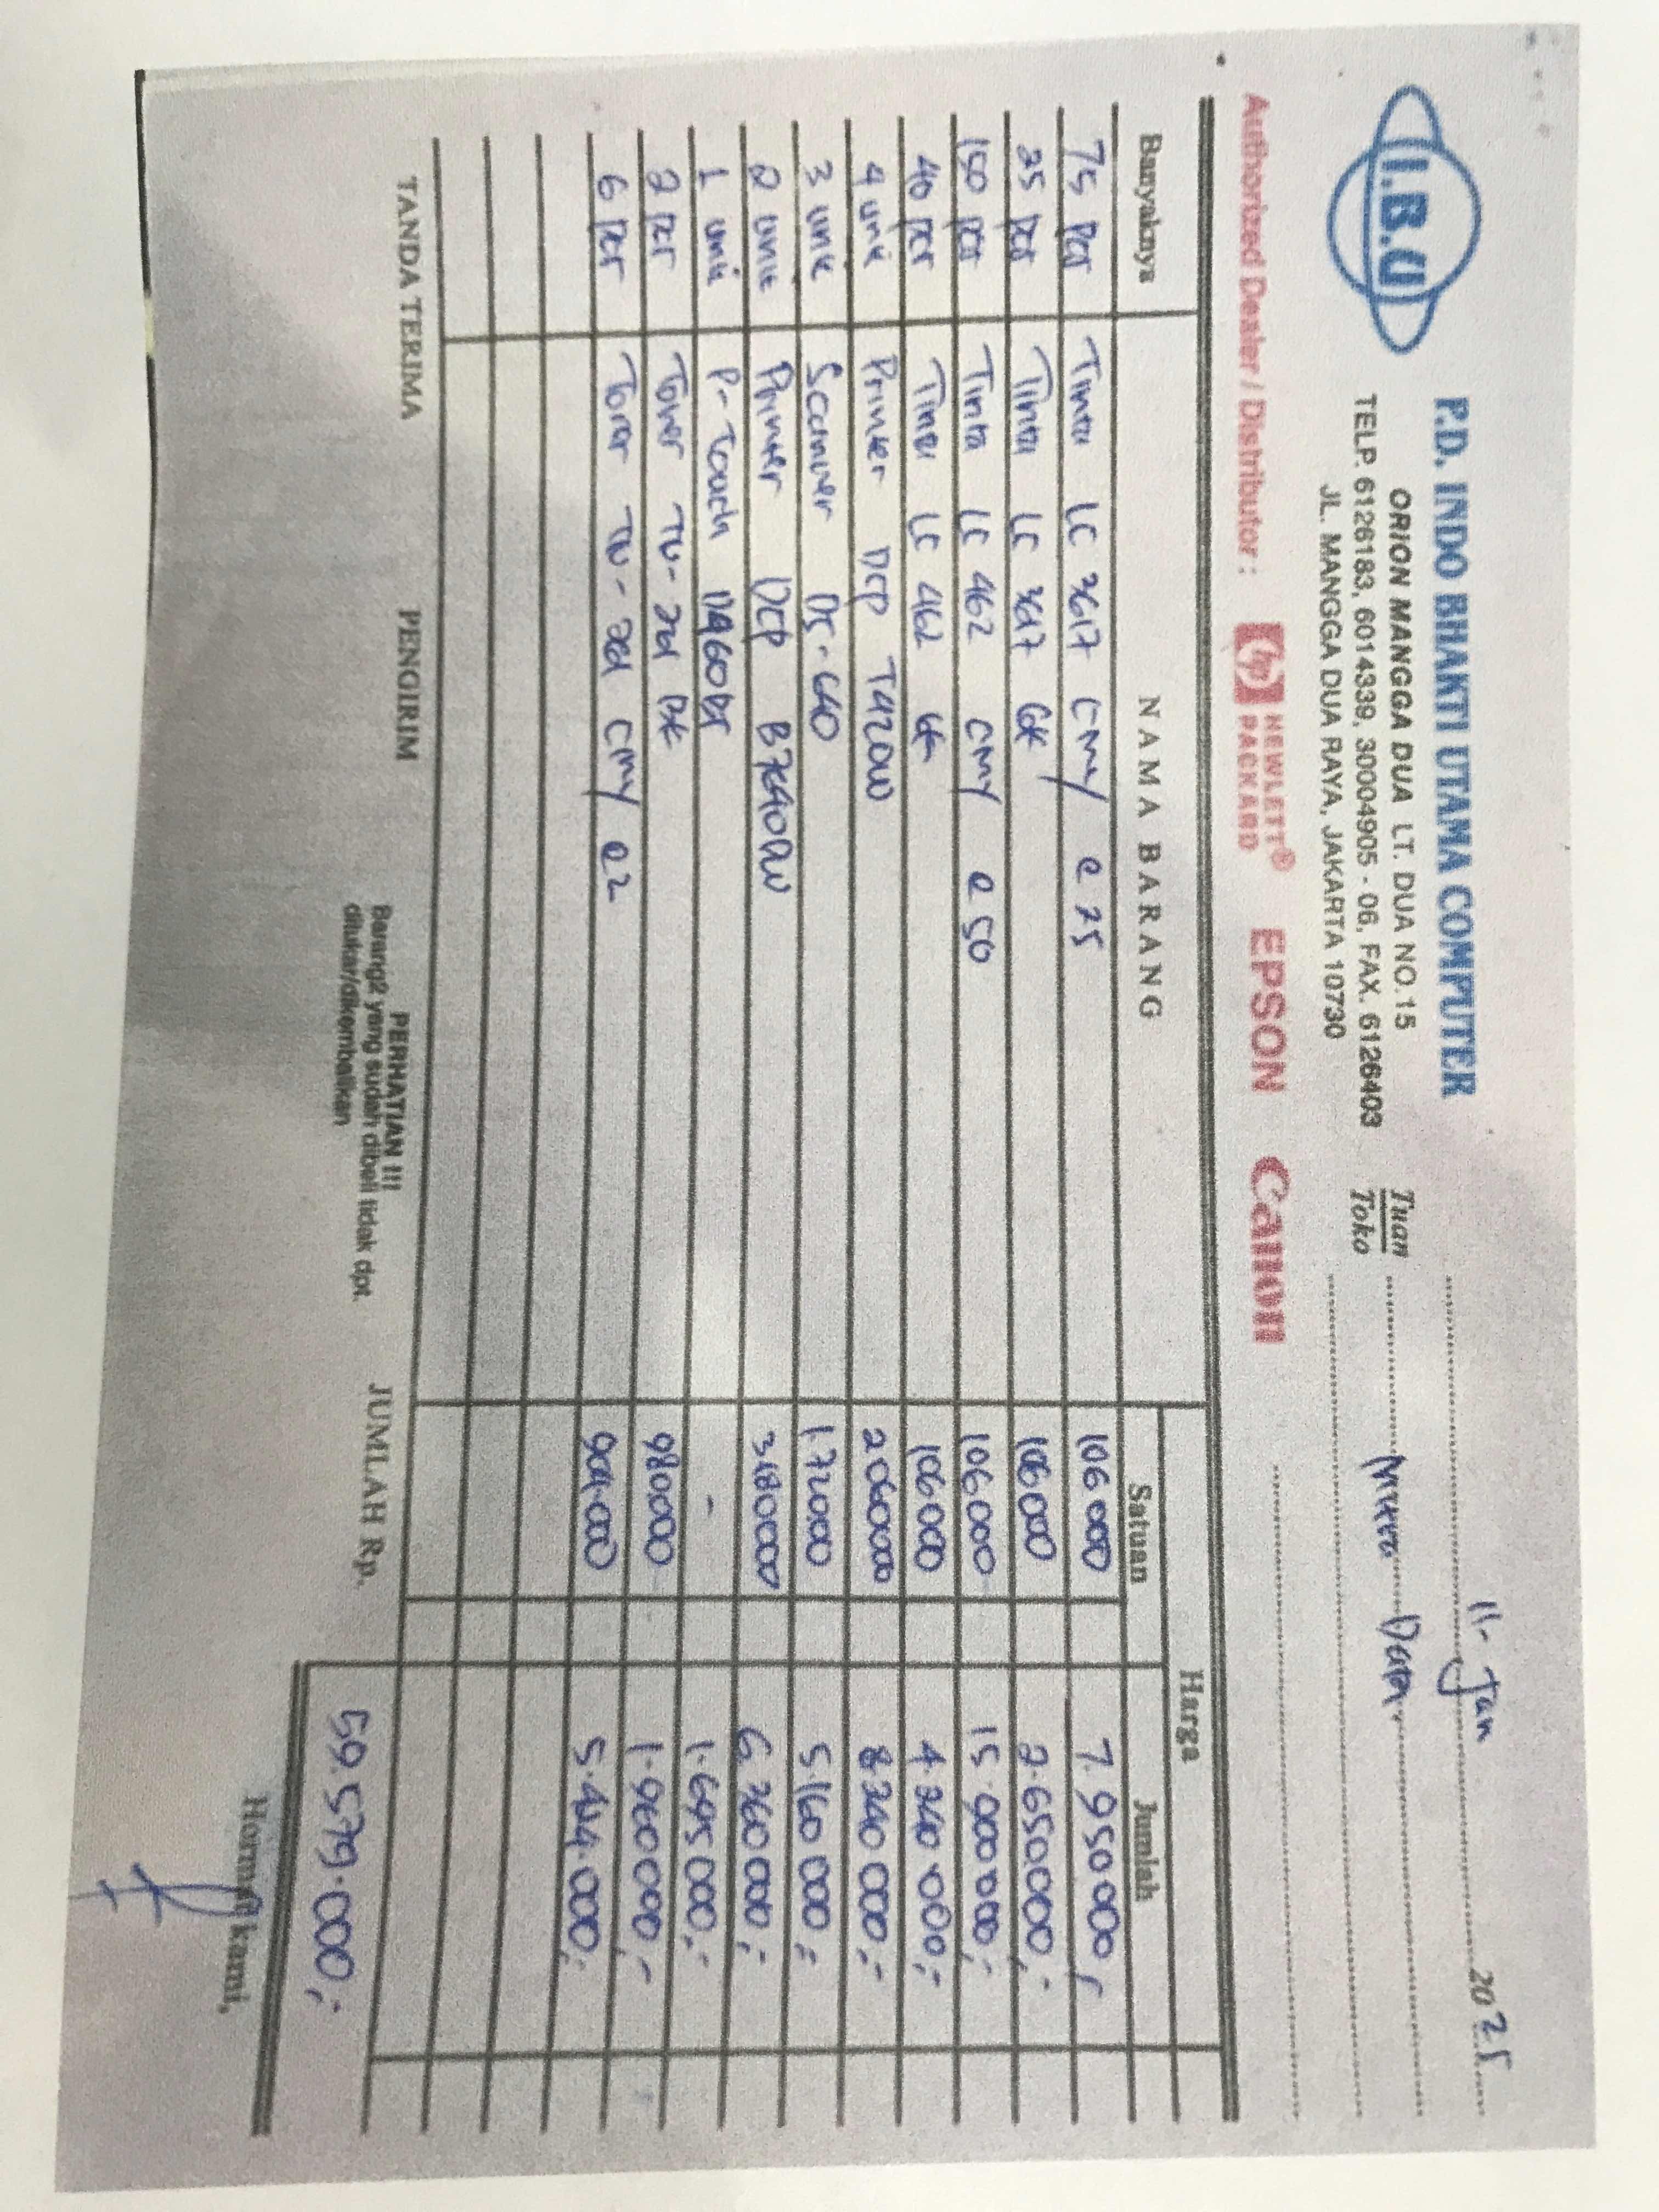 I.B.U
P.D. INDO BHAKTI UTAMA COMPUTER
ORION MANGGA DUA LT. DUA NO.15
TELP. 6126183, 6014339, 30004905 - 06, FAX. 6126403
JL. MANGGA DUA RAYA, JAKARTA 10730
11- Jan 2025
Tuan
Toko
Data
Authorized Dealer / Distributor : hp HEWLETT® PACKARD EPSON Canon
Banyaknya NAMA BARANG Harga
Satuan Jumlah
75 pcs Tinta LC 3617 CMY @ 25 106 000 7.950 000,-
25 pcs Tinta LC 3617 BK 106 000 2.650.000,-
150 pcs Tinta LC 462 CMY @ 50 106 000 15.900.000,-
40 pcs Tinta LC 462 BK 106 000 4.240.000,-
4 unit Printer DCP T420W 2060000 8.240 000,-
3 unit Scanner DS-640 1.720.000 5.160 000,-
2 unit Printer DCP B7640DW 3.180000 6.360 000,-
1 unit P-Touch - 1.695 000,-
2 pcs Toner TN-261 BK 980.000 1.960 000,-
6 pcs Toner TN-261 CMY @2 904.000 5.424.000,-
TANDA TERIMA PENGIRIM
PERHATIAN !!!
Barang2 yang sudah dibeli tidak dpt.
ditukar/dikembalikan
JUMLAH Rp. 59.579.000,-
Hormat kami,